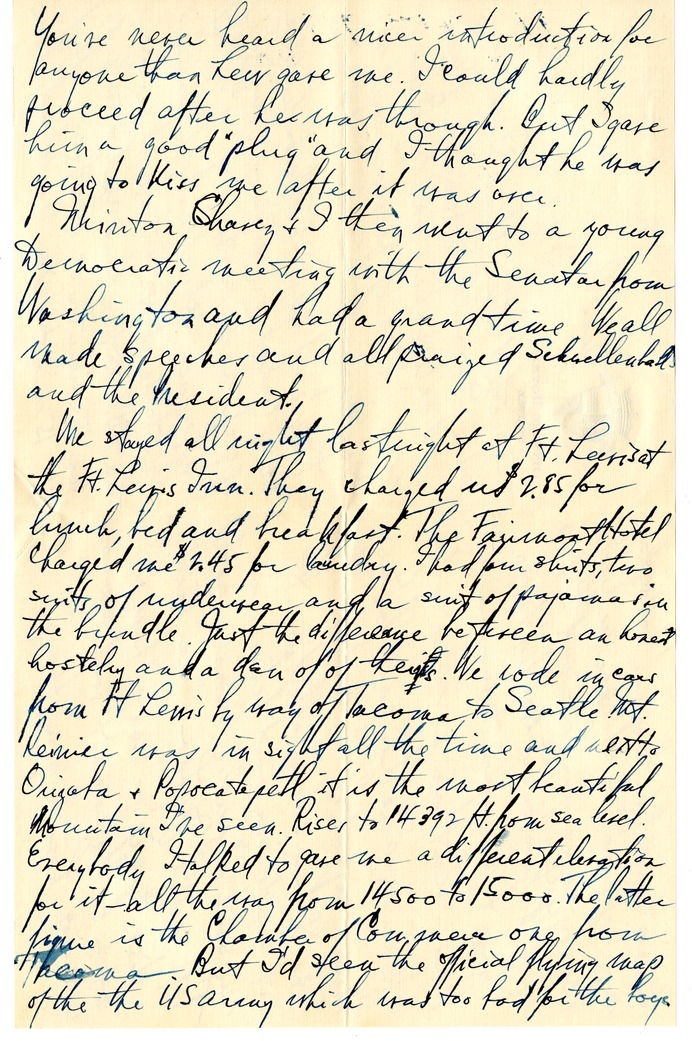 You've never heard a nicer introduction for
anyone than Lew gave me. I could hardly
proceed after he was through. But I gave
him a good "plug" and I thought he was
going to kiss me after it was over.
Minton Chavez & I then went to a young
Democratic meeting with the Senator from
Washington and had a grand time We all
made speeches and all praized Schwellenbach
and the President.
We stayed all night last night at Ft. Lewis at
the Ft. Lewis Inn. They charged us $2.85 for
lunch, bed and breakfast. The Fairmont Hotel
charged me $2.45 for laundry. I had four shirts, two
suits of underwear and a suit of pajamas in
the bundle. Just the difference between an honest
hostelry and a den of of . We rode in cars
from Ft Lewis by way of Tacoma to Seatle. Mt.
Reinier was in sight all the time and next to
Orizaba & Popocatapetl it is the most beautiful
Mountain I've seen. Rises to 14392 ft. from sea level.
Everybody I talked to gave me a different elevation
for it - all the way from 14500 to 15000. The latter
figure is the Chamber of Commerce one from
Tacoma. But I'd seen the official flying map
of the the US army which was too bad for the boys